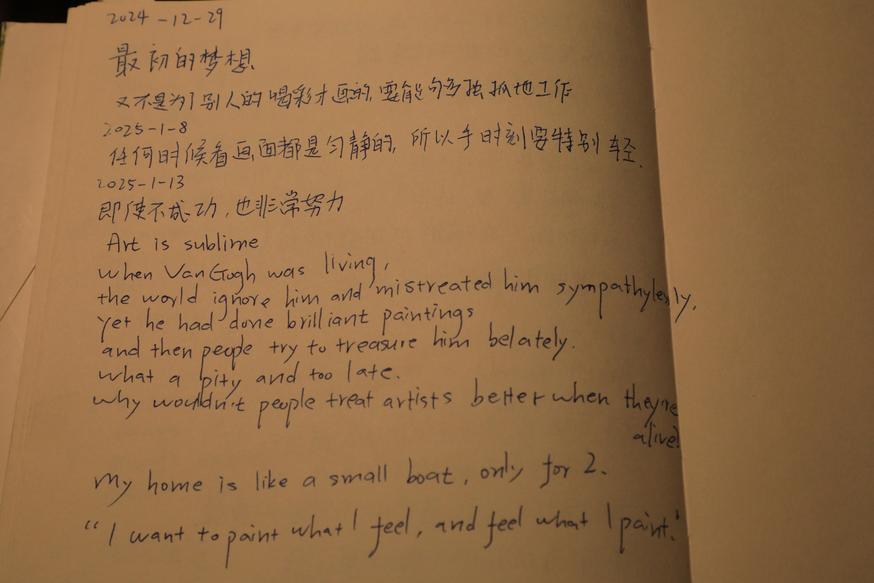 2024-12-29
最初的梦想
又不是为了别人的喝彩才画的,要能够多独孤地工作
2025-1-8
任何时候看画面都是匀静的,所以手时刻要特别轻.
2025-1-13
即使不成功,也非常努力
Art is sublime
when Van Gogh was living,
the world ignore him and mistreated him sympathylessly,
yet he had done brilliant paintings
and then people try to treasure him belately.
what a pity and too late.
why wouldn't people treat artists better when they're
alive?
My home is like a small boat, only for 2.
"I want to paint what I feel, and feel what I paint."